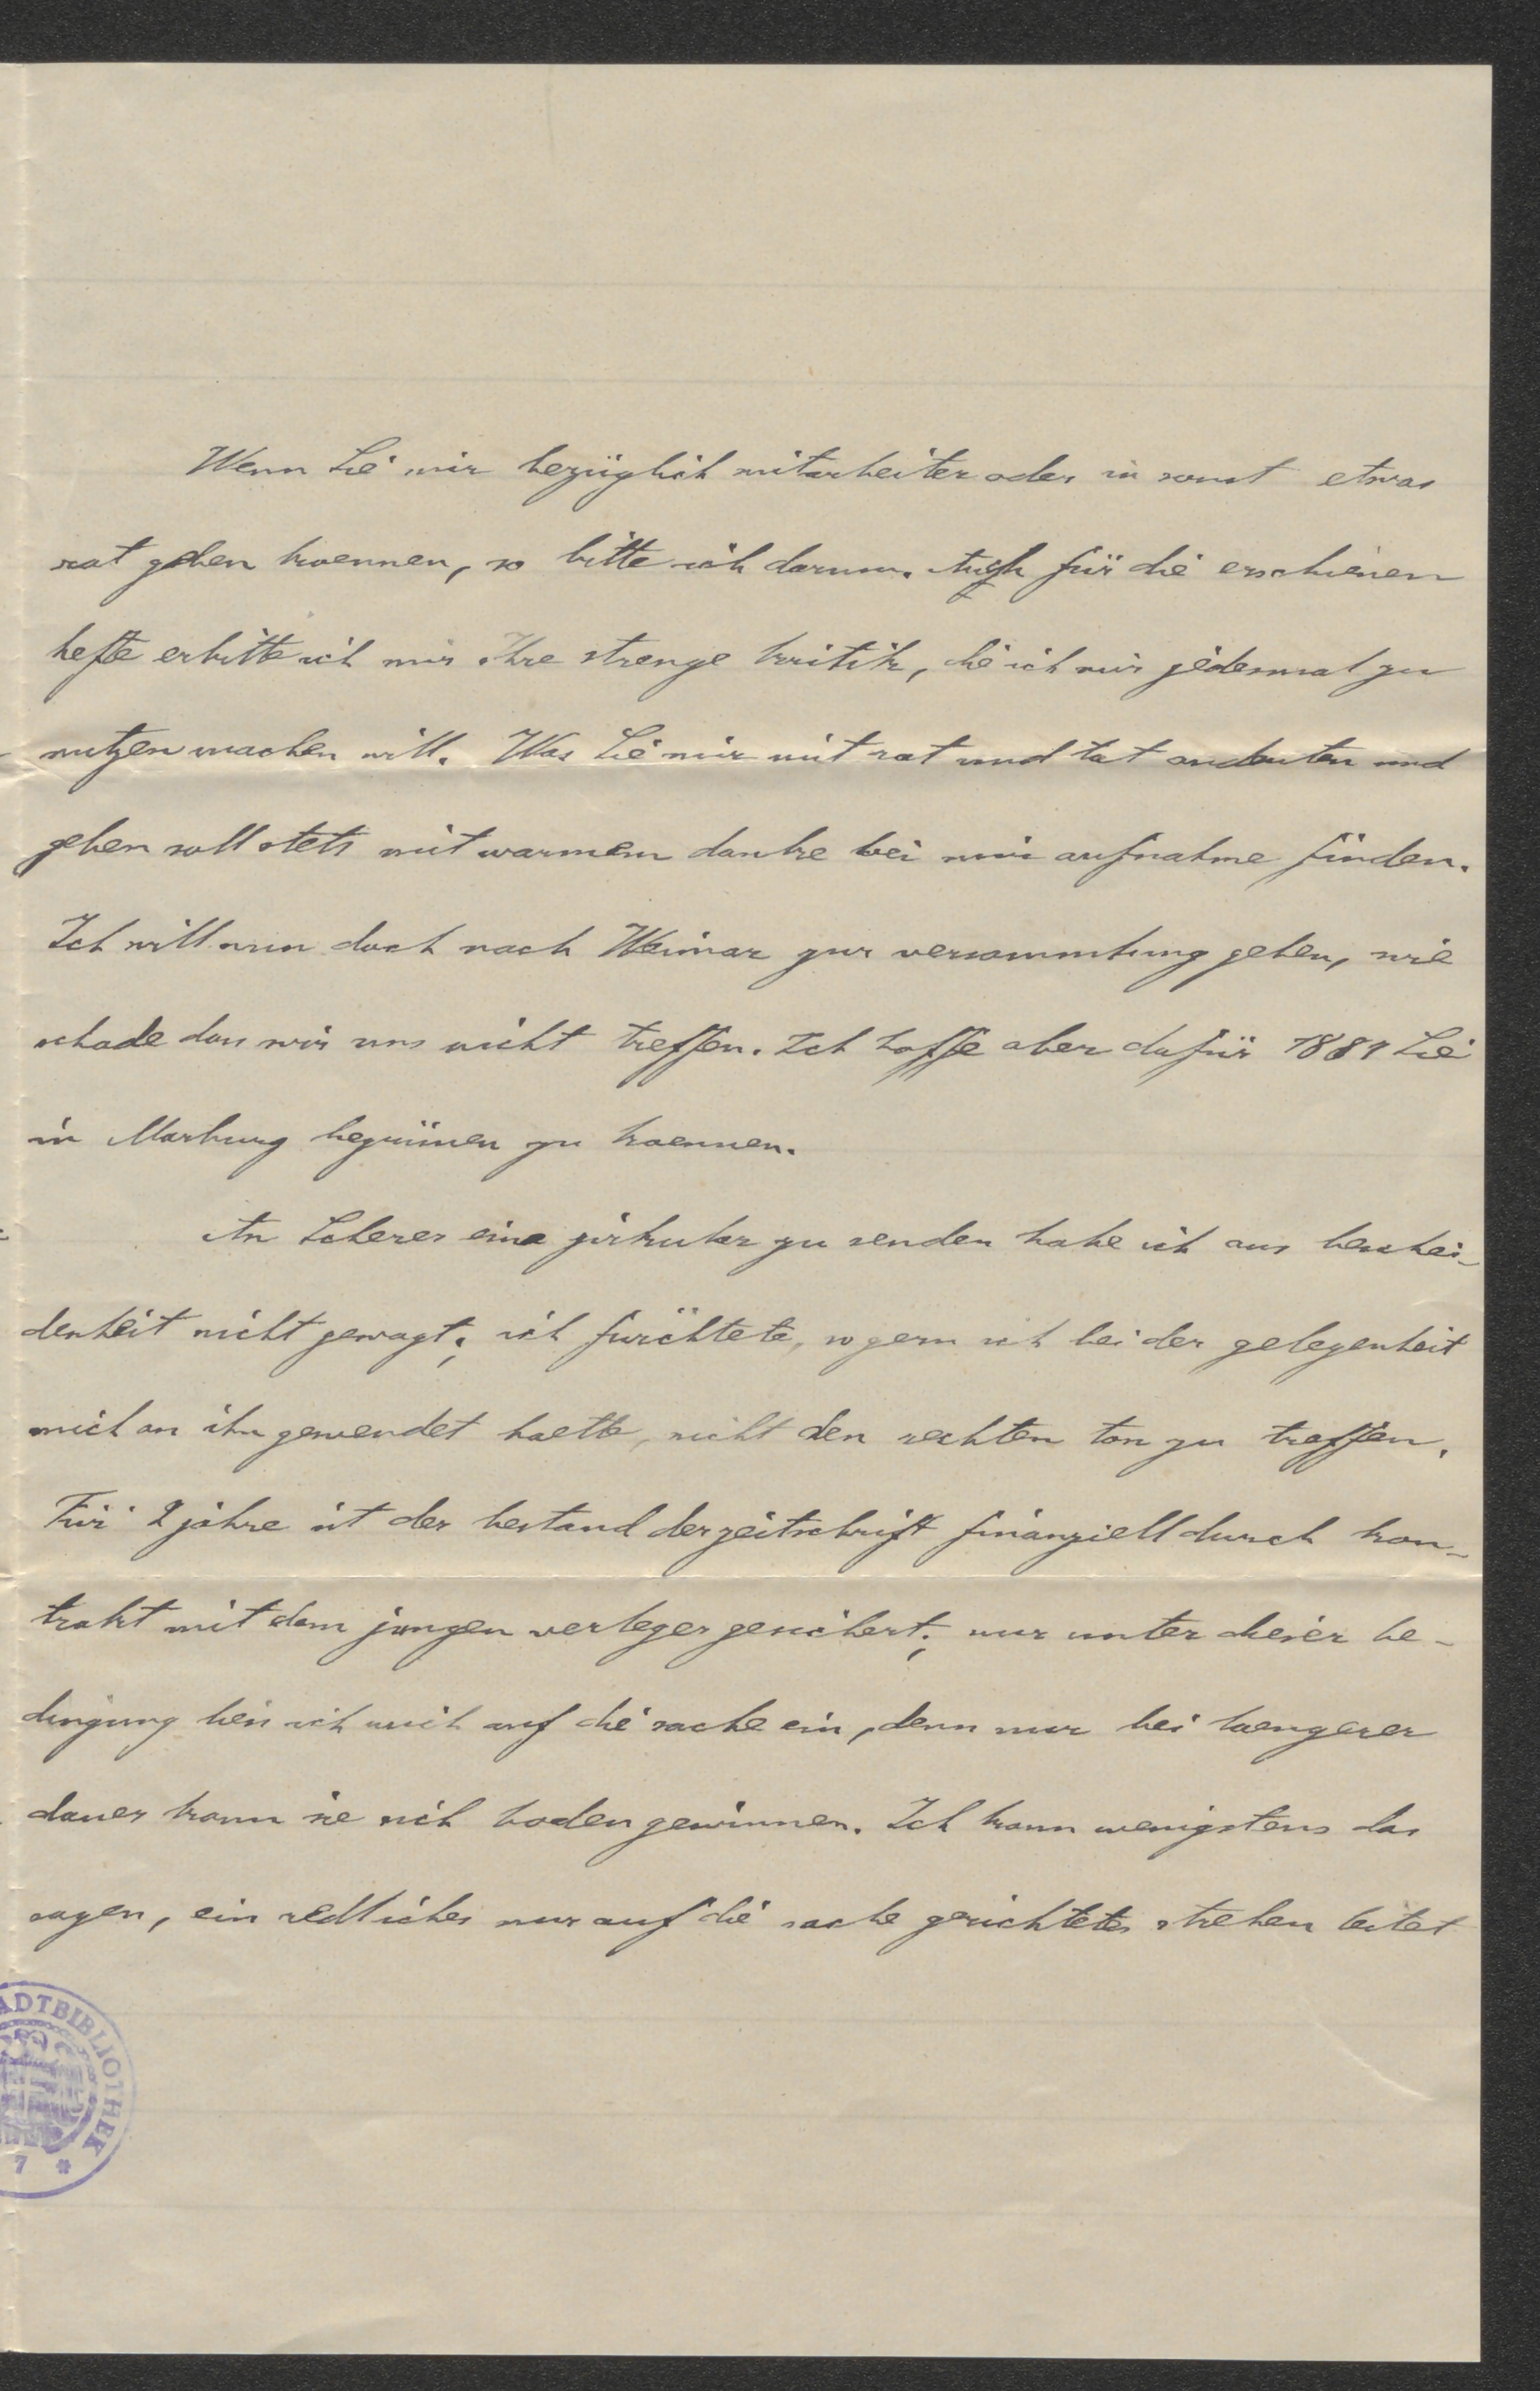 Wenn Sie mir bezüglich mitarbeiter oder in sonst etwas
rat geben koennen, so bitte ich darum. Auch für die erschienen
hefte erbitte ich mir Ihre strenge kritik, die ich mir jedesmal zu
nutzen machen will. Was Sie mir mit rat und tat andeuten und
geben soll stets mit warmem danke bei mir aufnahme finden.
Ich will nun doch nach Weimar zur versammlung gehen, wie
schade dass wir uns nicht treffen. Ich hoffe aber dafür 1881 Sie
in Marburg begrüssen zu koennen.
An Scherer eine zirkular zu senden habe ich aus beschei-
denheit nicht gewagt; ich fürchtete, so gern ich bei der gelegenheit
mich an ihn gewendet haette, nicht den rechten ton zu treffen.
Für 2 jahre ist der bestand der zeitschrift finanziell durch kon-
trakt mit dem jungen verleger gesichert; nur unter dieser be-
dingung liess ich mich auf die sache ein, denn nur bei laengerer
dauer kann sie sich boden gewinnen. Ich kann wenigstens das
sagen, ein redliches nur auf die sache gerichtetes streben leitet
ADTBIBLIOTHEK
7 *